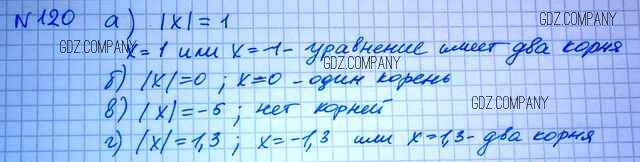 №120 а) |x| = 1 GDZ.COMPANY
GDZ.COMPANY x = 1 или x = -1 - уравнение имеет два корня
GDZ.COMPANY
б) |x| = 0 ; x = 0 - один корень
в) |x| = -5 ; нет корней GDZ.COMPANY
г) |x| = 1,3 ; x = -1,3 или x = 1,3 - два корня
GDZ.COMPANY